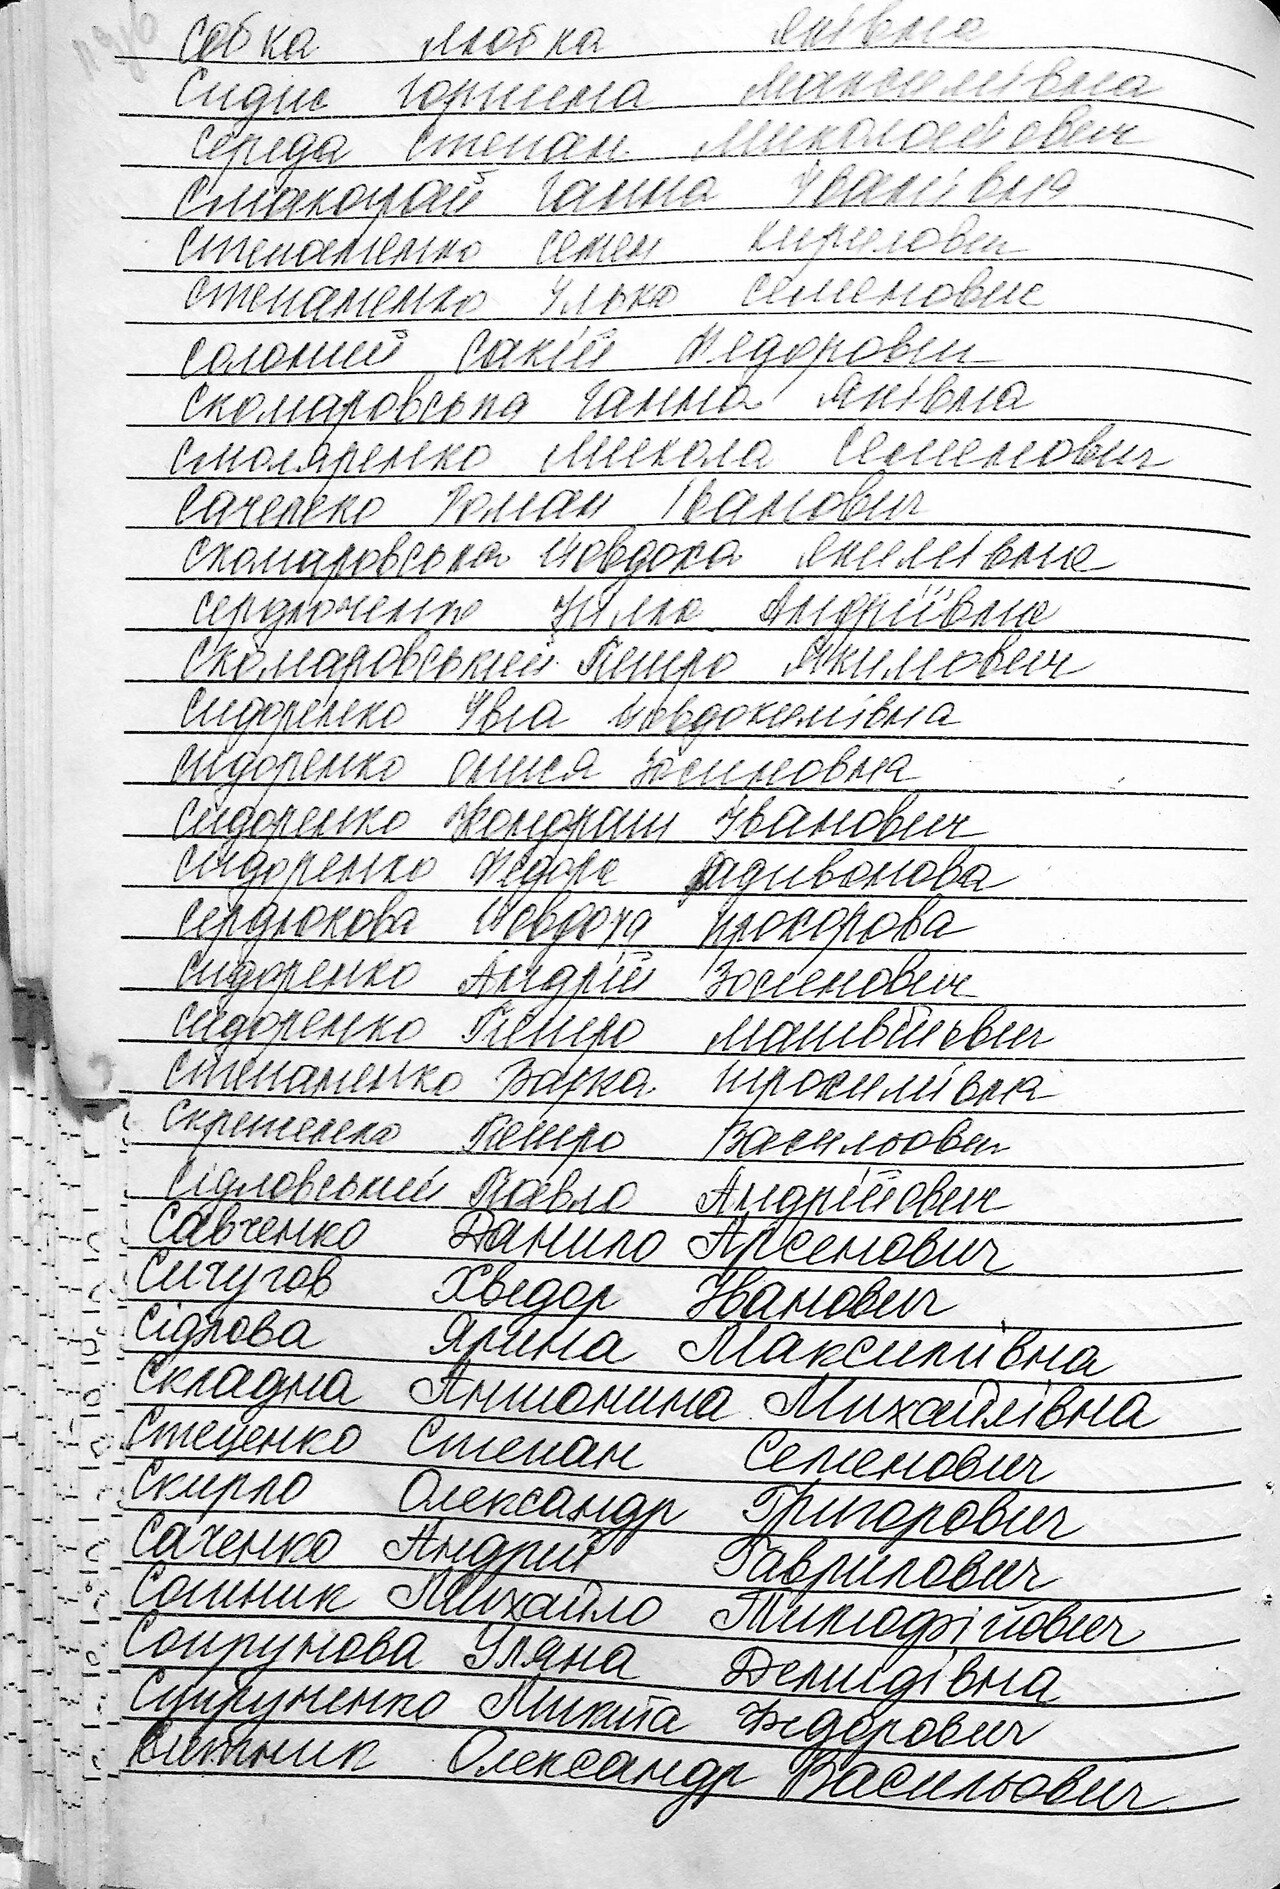 Собка Любка Яківна
Сидис Горпина Максимівна
Середа Степан Миколайович
Смакоуай Ганна Іванівна
Степаненко Семен Кирилович
Степаненко Улька Семеновис
Солоний Сакій Федорович
Скомаровська Ганна Яківна
Смоляренко Микола Семенович
Саченко Роман Іванович
Скомаровська Мовдоха Якимівна
Сердюченко Уляна Андріївна
Скомаровський Петро Якимович
Сидоренко Ївга Мовдокимівна
Сидоренко Онися Зосимовна
Сидоренко Кондрат Іванович
Сидоренко Федора Радивонова
Сердюкова Мовдоха Прохорова
Сидоренко Андрій Зосимович
Сидоренко Петро Матвійович
Степаненко Варка Трохимівна
Скрипенко Петро Васильович
Сідловський Павло Андрійович
Савченко Данило Арсенович
Сичугов Хведор Іванович
Сідлова Ярина Максимівна
Складна Антонина Михайлівна
Стеценко Степан Семенович
Скирло Олександр Григорович
Саченко Андрій Гаврилович
Сотник Михайло Тимофійович
Сопрунова Уляна Демидівна
Супруненко Микита Федорович
Ситник Олександр Васильович